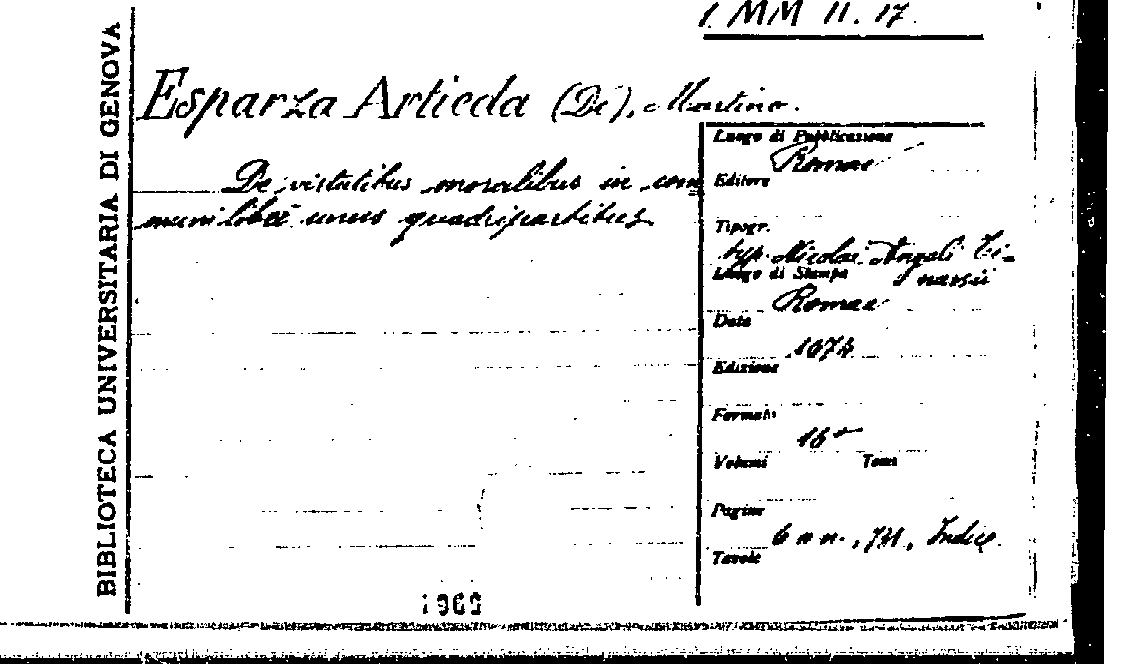 1. MM 11. 17.
BIBLIOTECA UNIVERSITARIA DI GENOVA
Esparza Artieda (De), Martino.
De virtutibus moralibus in com
muni liber unus quadripartitus
Luogo di Pubblicazione
Romae
Editore
Tipogr.
typ. Nicolai Angeli Ti-
nassii
Luogo di Stampa
Romae
Data
1674
Edizione
Formato
16°
Volumi Tomi
Pagine
6 n n., 711, Indice.
Tavole
1969